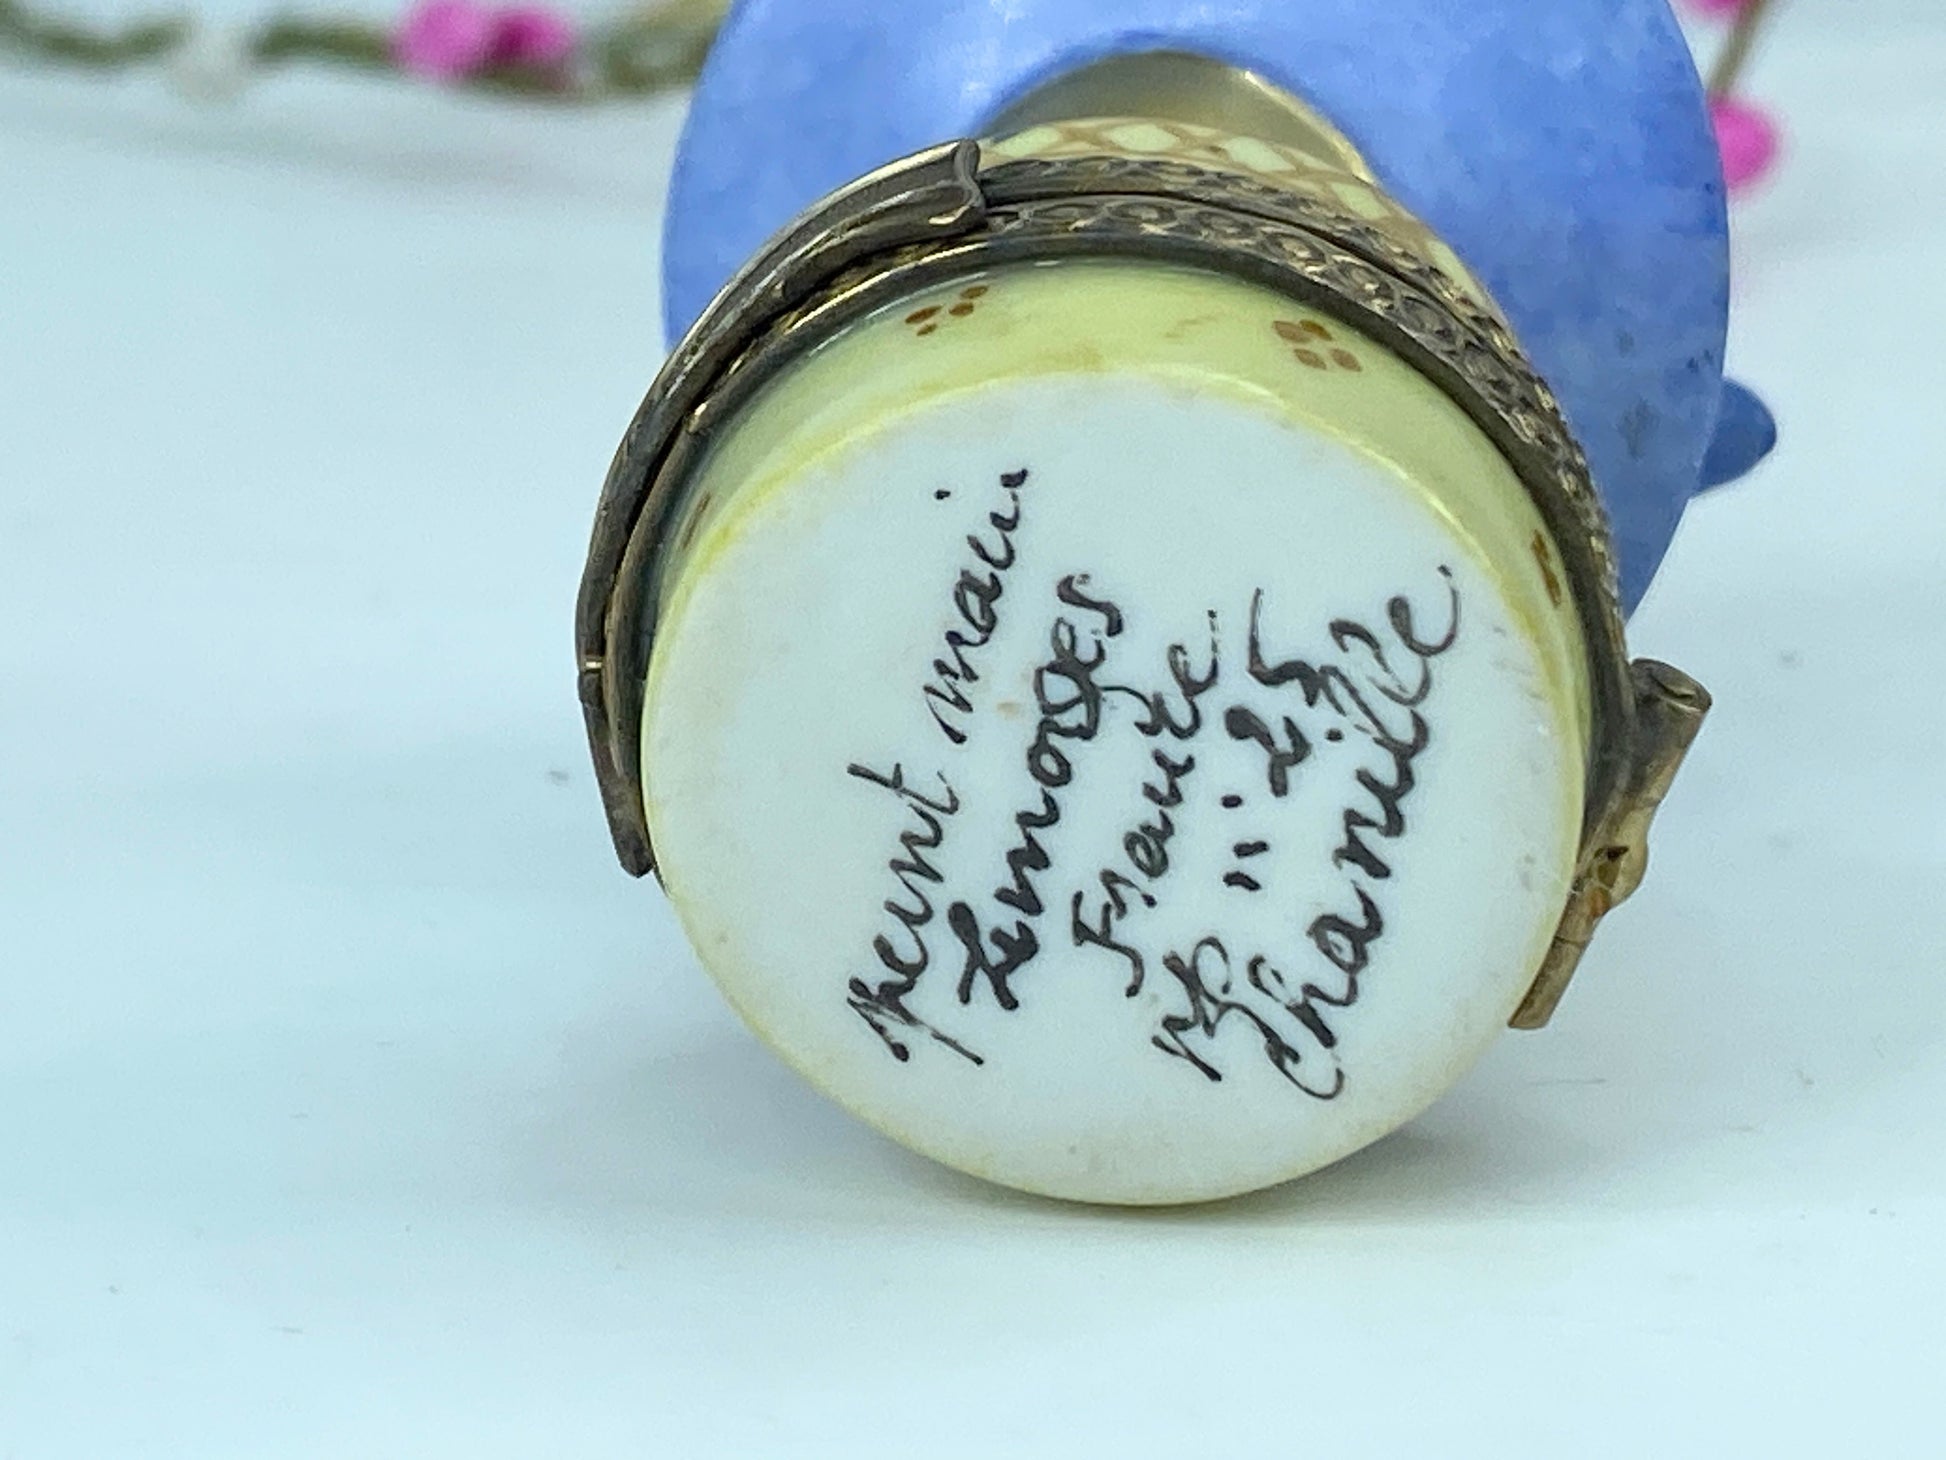 peint main
Limoges
France
N° " 25
Chamille